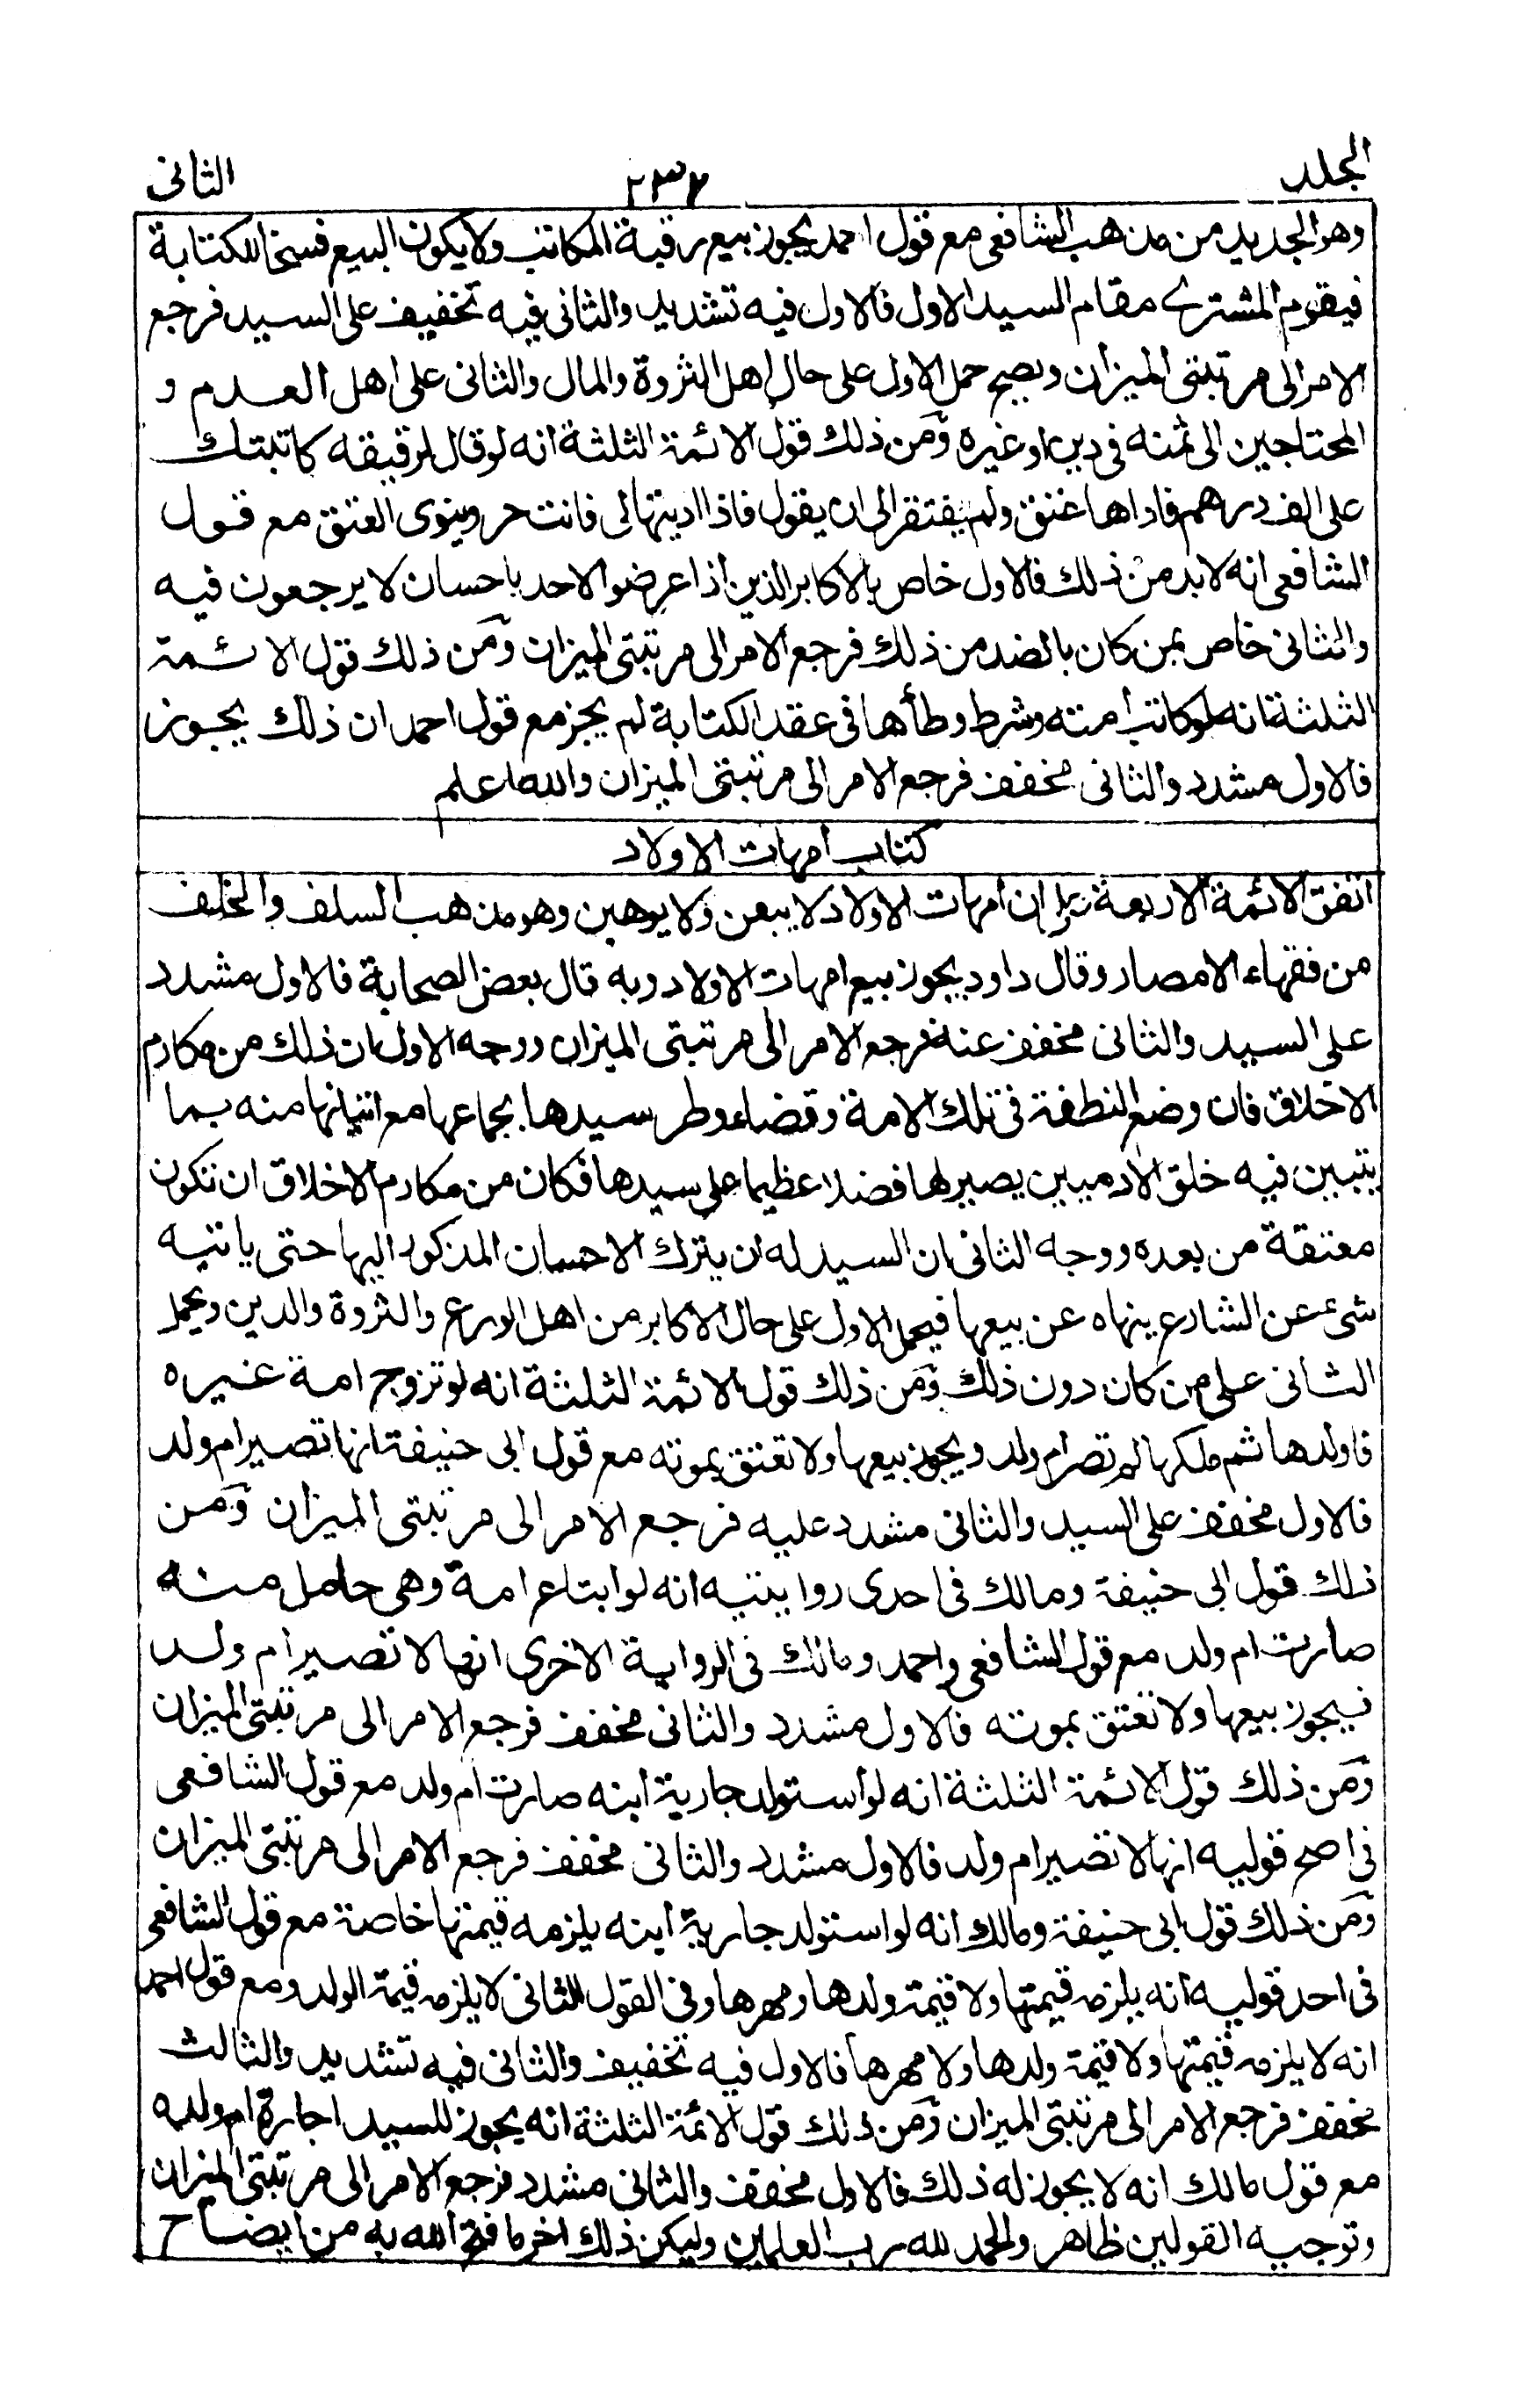 المجلد ٢٣٢ الثانى
وهو الجديد من مذهب الشافعى مع قول احمد يجوز بيع رقبة المكاتب ولا يكون البيع فسخا للكتابة
فيقوم المشترے مقام السيد الاول فالاول فيه تشديد والثانى فيه تخفيف على السيد فرجع
الامر الى مرتبتى الميزان ويصح حمل الاول على حال اهل الثروة والمال والثانى على اهل العدم و
المحتاجين الى ثمنه فى دين او غيره ومن ذلك قول الائمة الثلثة انه لو قال لرقيقه كاتبتك
على الف درهم فاداها عتق ولم يفتقر الى ان يقول فاذا اديتها لى فانت حر وينوى العتق مع قول
الشافعى انه لا بد من ذلك فالاول خاص بالاكابر الذين اذا عرضوا لاحد باحسان لا يرجعون فيه
والثانى خاص بمن كان بالضد من ذلك فرجع الامر الى مرتبتى الميزان ومن ذلك قول الائمة
الثلثة انه لو كاتب امته وشرط وطأها فى عقد الكتابة لم يجز مع قول احمد ان ذلك يجوز
فالاول مشدد والثانى مخفف فرجع الامر الى مرتبتى الميزان والله اعلم
كتاب امهات الاولاد
اتفق الائمة الاربعة على ان امهات الاولاد لا يبعن ولا يوهبن وهو مذهب السلف والخلف
من فقهاء الامصار وقال داود يجوز بيع امهات الاولاد وبه قال بعض الصحابة فالاول مشدد
على السيد والثانى مخفف عنه فرجع الامر الى مرتبتى الميزان ووجه الاول ان ذلك من مكارم
الاخلاق فان وضع النطفة فى تلك الامة وقضاء وطر سيدها بجماعها مع اتيانها منه بما
يتبين فيه خلق الادميين يصير لها فضلا عظيما على سيدها فكان من مكارم الاخلاق ان تكون
معتقة من بعده ووجه الثانى ان السيد له ان يترك الاحسان المذكور اليها حتى ياتيه
شىء عن الشارع ينهاه عن بيعها فيحمل الاول على حال الاكابر من اهل الورع والثروة والدين ويحمل
الثانى على من كان دون ذلك ومن ذلك قول الائمة الثلثة انه لو تزوج امة غيره
فاولدها ثم ملكها لم تصر ام ولد ويجوز بيعها ولا تعتق بموته مع قول ابى حنيفة انها تصير ام ولد
فالاول مخفف على السيد والثانى مشدد عليه فرجع الامر الى مرتبتى الميزان ومن
ذلك قول ابى حنيفة ومالك فى احدى روايتيه انه لو ابتاع امة وهى حامل منه
صارت ام ولد مع قول الشافعى واحمد ومالك فى الرواية الاخرى انها لا تصير ام ولد
فيجوز بيعها ولا تعتق بموته فالاول مشدد والثانى مخفف فرجع الامر الى مرتبتى الميزان
ومن ذلك قول الائمة الثلثة انه لو استولد جارية ابنه صارت ام ولد مع قول الشافعى
فى اصح قوليه انها لا تصير ام ولد فالاول مشدد والثانى مخفف فرجع الامر الى مرتبتى الميزان
ومن ذلك قول ابى حنيفة ومالك انه لو استولد جارية ابنه يلزمه قيمتها خاصة مع قول الشافعى
فى احد قوليه انه يلزمه قيمتها ولا قيمة ولدها ومهرها وفى القول الثانى لا يلزمه قيمة الولد ومع قول احمد
انه لا يلزمه قيمتها ولا قيمة ولدها ولا مهرها فالاول فيه تخفيف والثانى فيه تشديد والثالث
مخفف فرجع الامر الى مرتبتى الميزان ومن ذلك قول الائمة الثلثة انه يجوز للسيد اجارة ام ولده
مع قول مالك انه لا يجوز له ذلك فالاول مخفف والثانى مشدد فرجع الامر الى مرتبتى الميزان
وتوجيه القولين ظاهر والحمد لله رب العلمين وليكن ذلك اخر ما فتح الله به من ايضاح